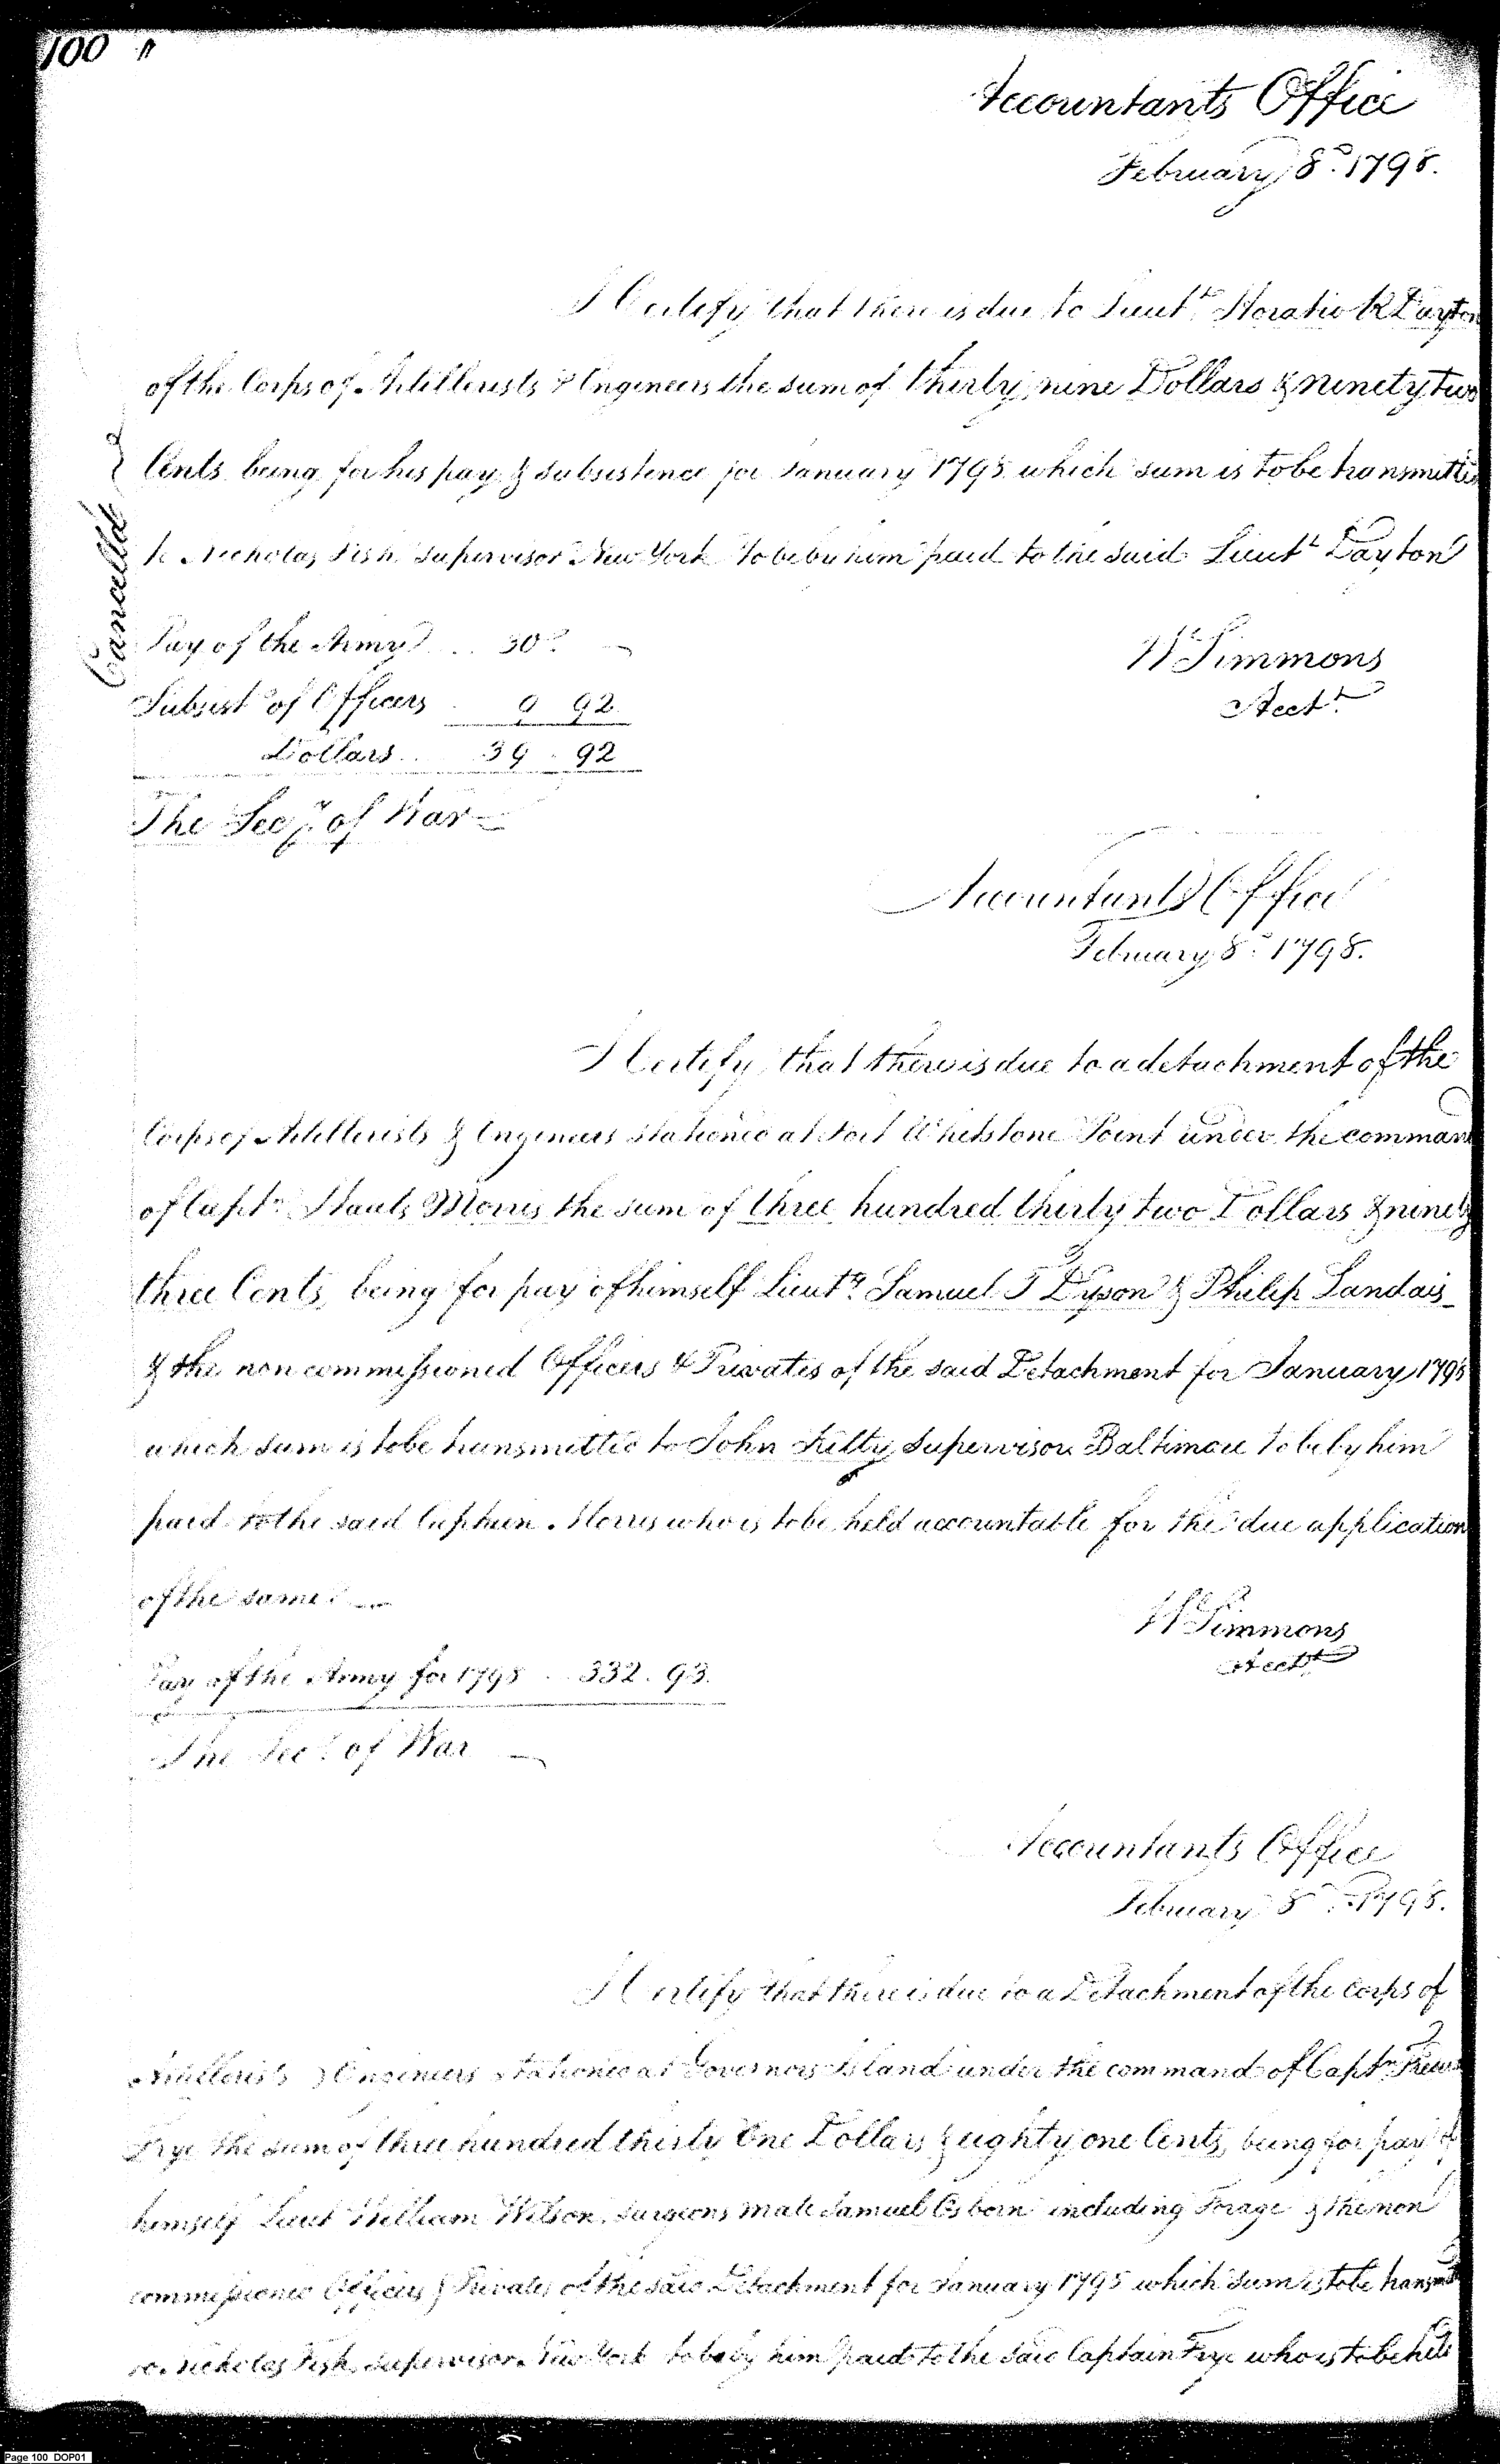 100
Accountants Office
February 8th 1798.
I Certify that there is due to Lieutt. Horatio R Dayton
of the Corps of Artillerists & Engineers the sum of thirty nine Dollars & ninety two
Cents being for his pay & subsistence for January 1798 which sum is to be transmitted
to Nicholas Fish Supervisor New York to be by him paid to the said Lieutt Dayton
Cancelled
Pay of the Army .. 30.
W Simmons
Subsist. of Officers 9 92
Acctt.
Dollars .. 39 . 92
The Secy. of War
Accountants Office
February 8th 1798.
I Certify that there is due to a detachment of the
Corps of Artillerists & Engineers stationed at Fort Whetstone Point under the command
of Captn. Staats Morris the sum of three hundred thirty two Dollars & ninety
three Cents, being for pay of himself Lieuts. Samuel T Dyson & Philip Landais
& the non commissioned Officers & Privates of the said Detachment for January 1798
which sum is to be transmitted to John Kilty Supervisor Baltimore to be by him
paid to the said Captain Morris who is to be held accountable for the due application
of the same.
W Simmons
Acctt
Pay of the Army for 1798 .. 332 . 93.
The Secy. of War
Accountants Office
February 8th 1798.
I Certify that there is due to a Detachment of the Corps of
Artillerists & Engineers stationed at Governors Island under the command of Captn.
Frye the sum of three hundred thirty One Dollars & eighty one Cents, being for pay of
himself Lieut William Wilson, Surgeons Mate Samuel Osborn including Forage & the non
commissioned Officers & Privates of the said Detachment for January 1798 which sum is to be transmd
to Nicholas Fish Supervisor New York to be by him paid to the said Captain Frye who is to be held
Page 100 DOP01